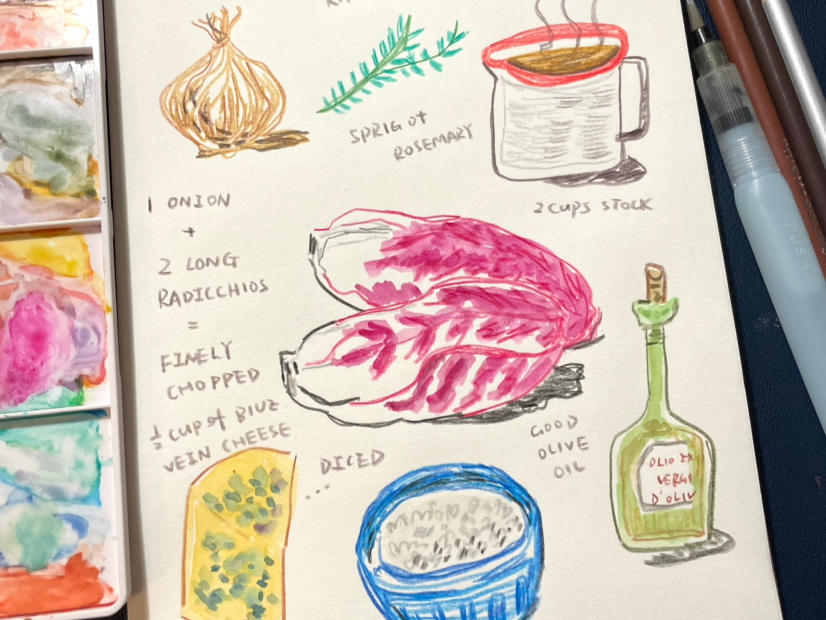 SPRIG OF
ROSEMARY
2 CUPS STOCK
1 ONION
+
2 LONG
RADICCHIOS
=
FINELY
CHOPPED
½ CUP of BLUE
VEIN CHEESE
DICED
...
GOOD
OLIVE
OIL
OLIO EX
VERGI
D'OLIV
PUSH